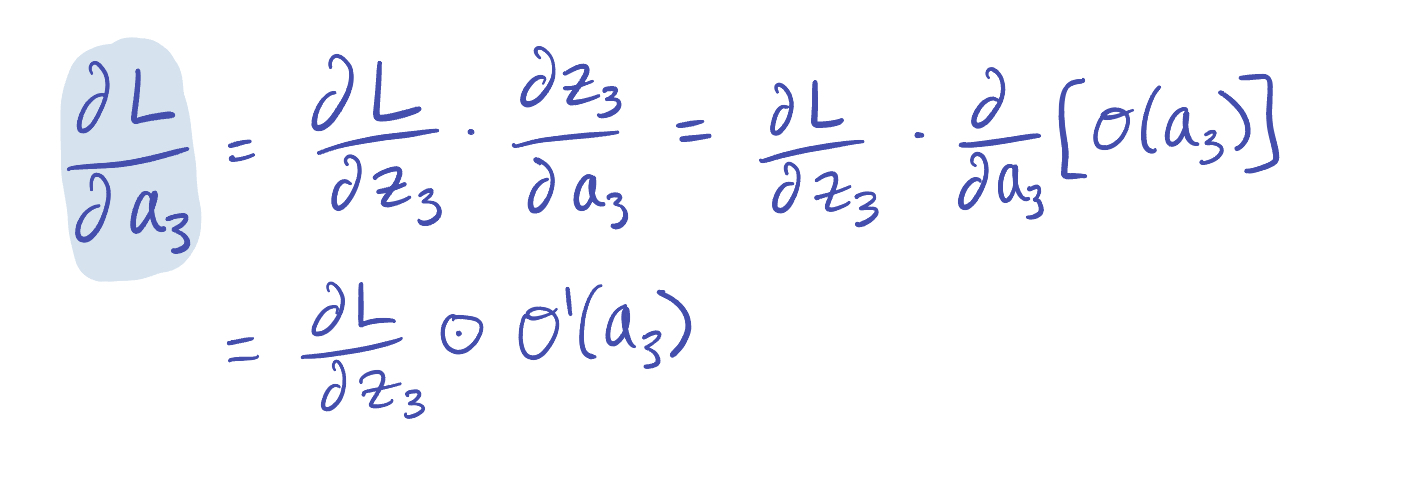 ∂L/∂a₃ = ∂L/∂z₃ · ∂z₃/∂a₃ = ∂L/∂z₃ · ∂/∂a₃ [σ(a₃)]
= ∂L/∂z₃ ⊙ σ'(a₃)